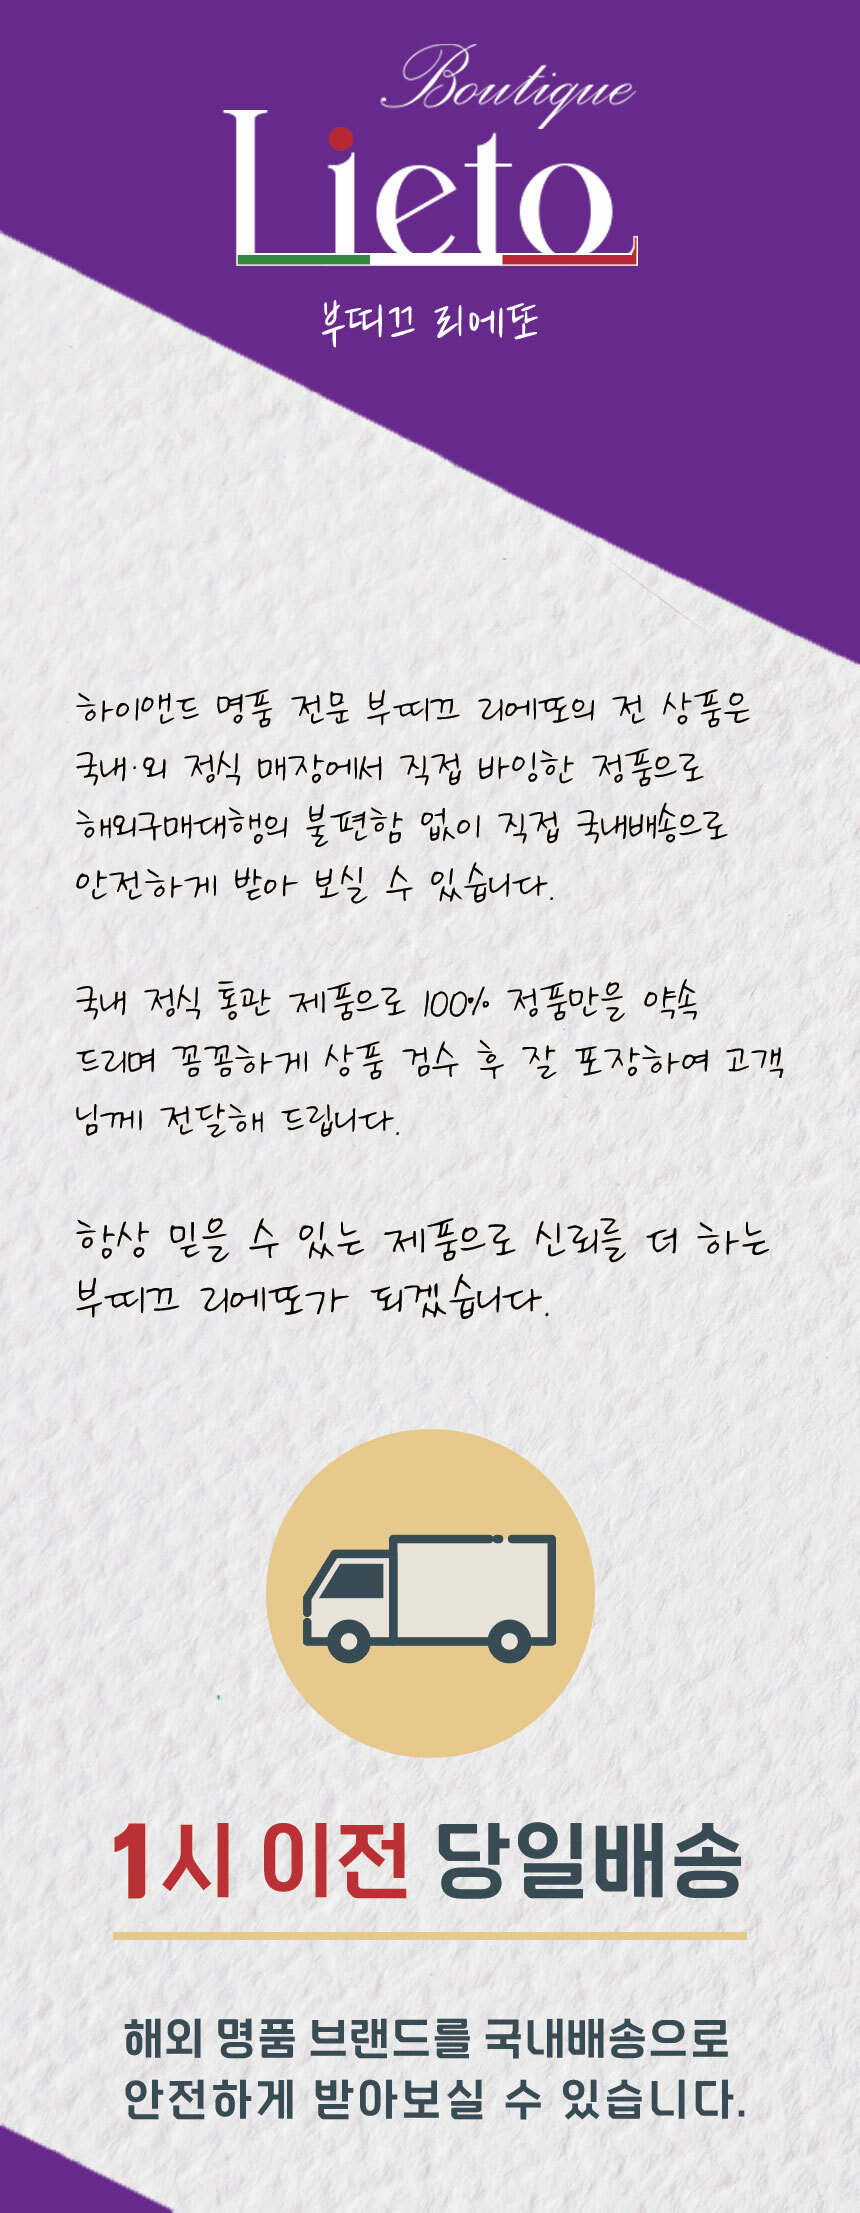 Boutique
Lieto
부띠끄 리에또
하이앤드 명품 전문 부띠끄 리에또의 전 상품은
국내·외 정식 매장에서 직접 바잉한 정품으로
해외구매대행의 불편함 없이 직접 국내배송으로
안전하게 받아 보실 수 있습니다.
국내 정식 통관 제품으로 100% 정품만을 약속
드리며 꼼꼼하게 상품 검수 후 잘 포장하여 고객
님께 전달해 드립니다.
항상 믿을 수 있는 제품으로 신뢰를 더 하는
부띠끄 리에또가 되겠습니다.
1시 이전 당일배송
해외 명품 브랜드를 국내배송으로
안전하게 받아보실 수 있습니다.